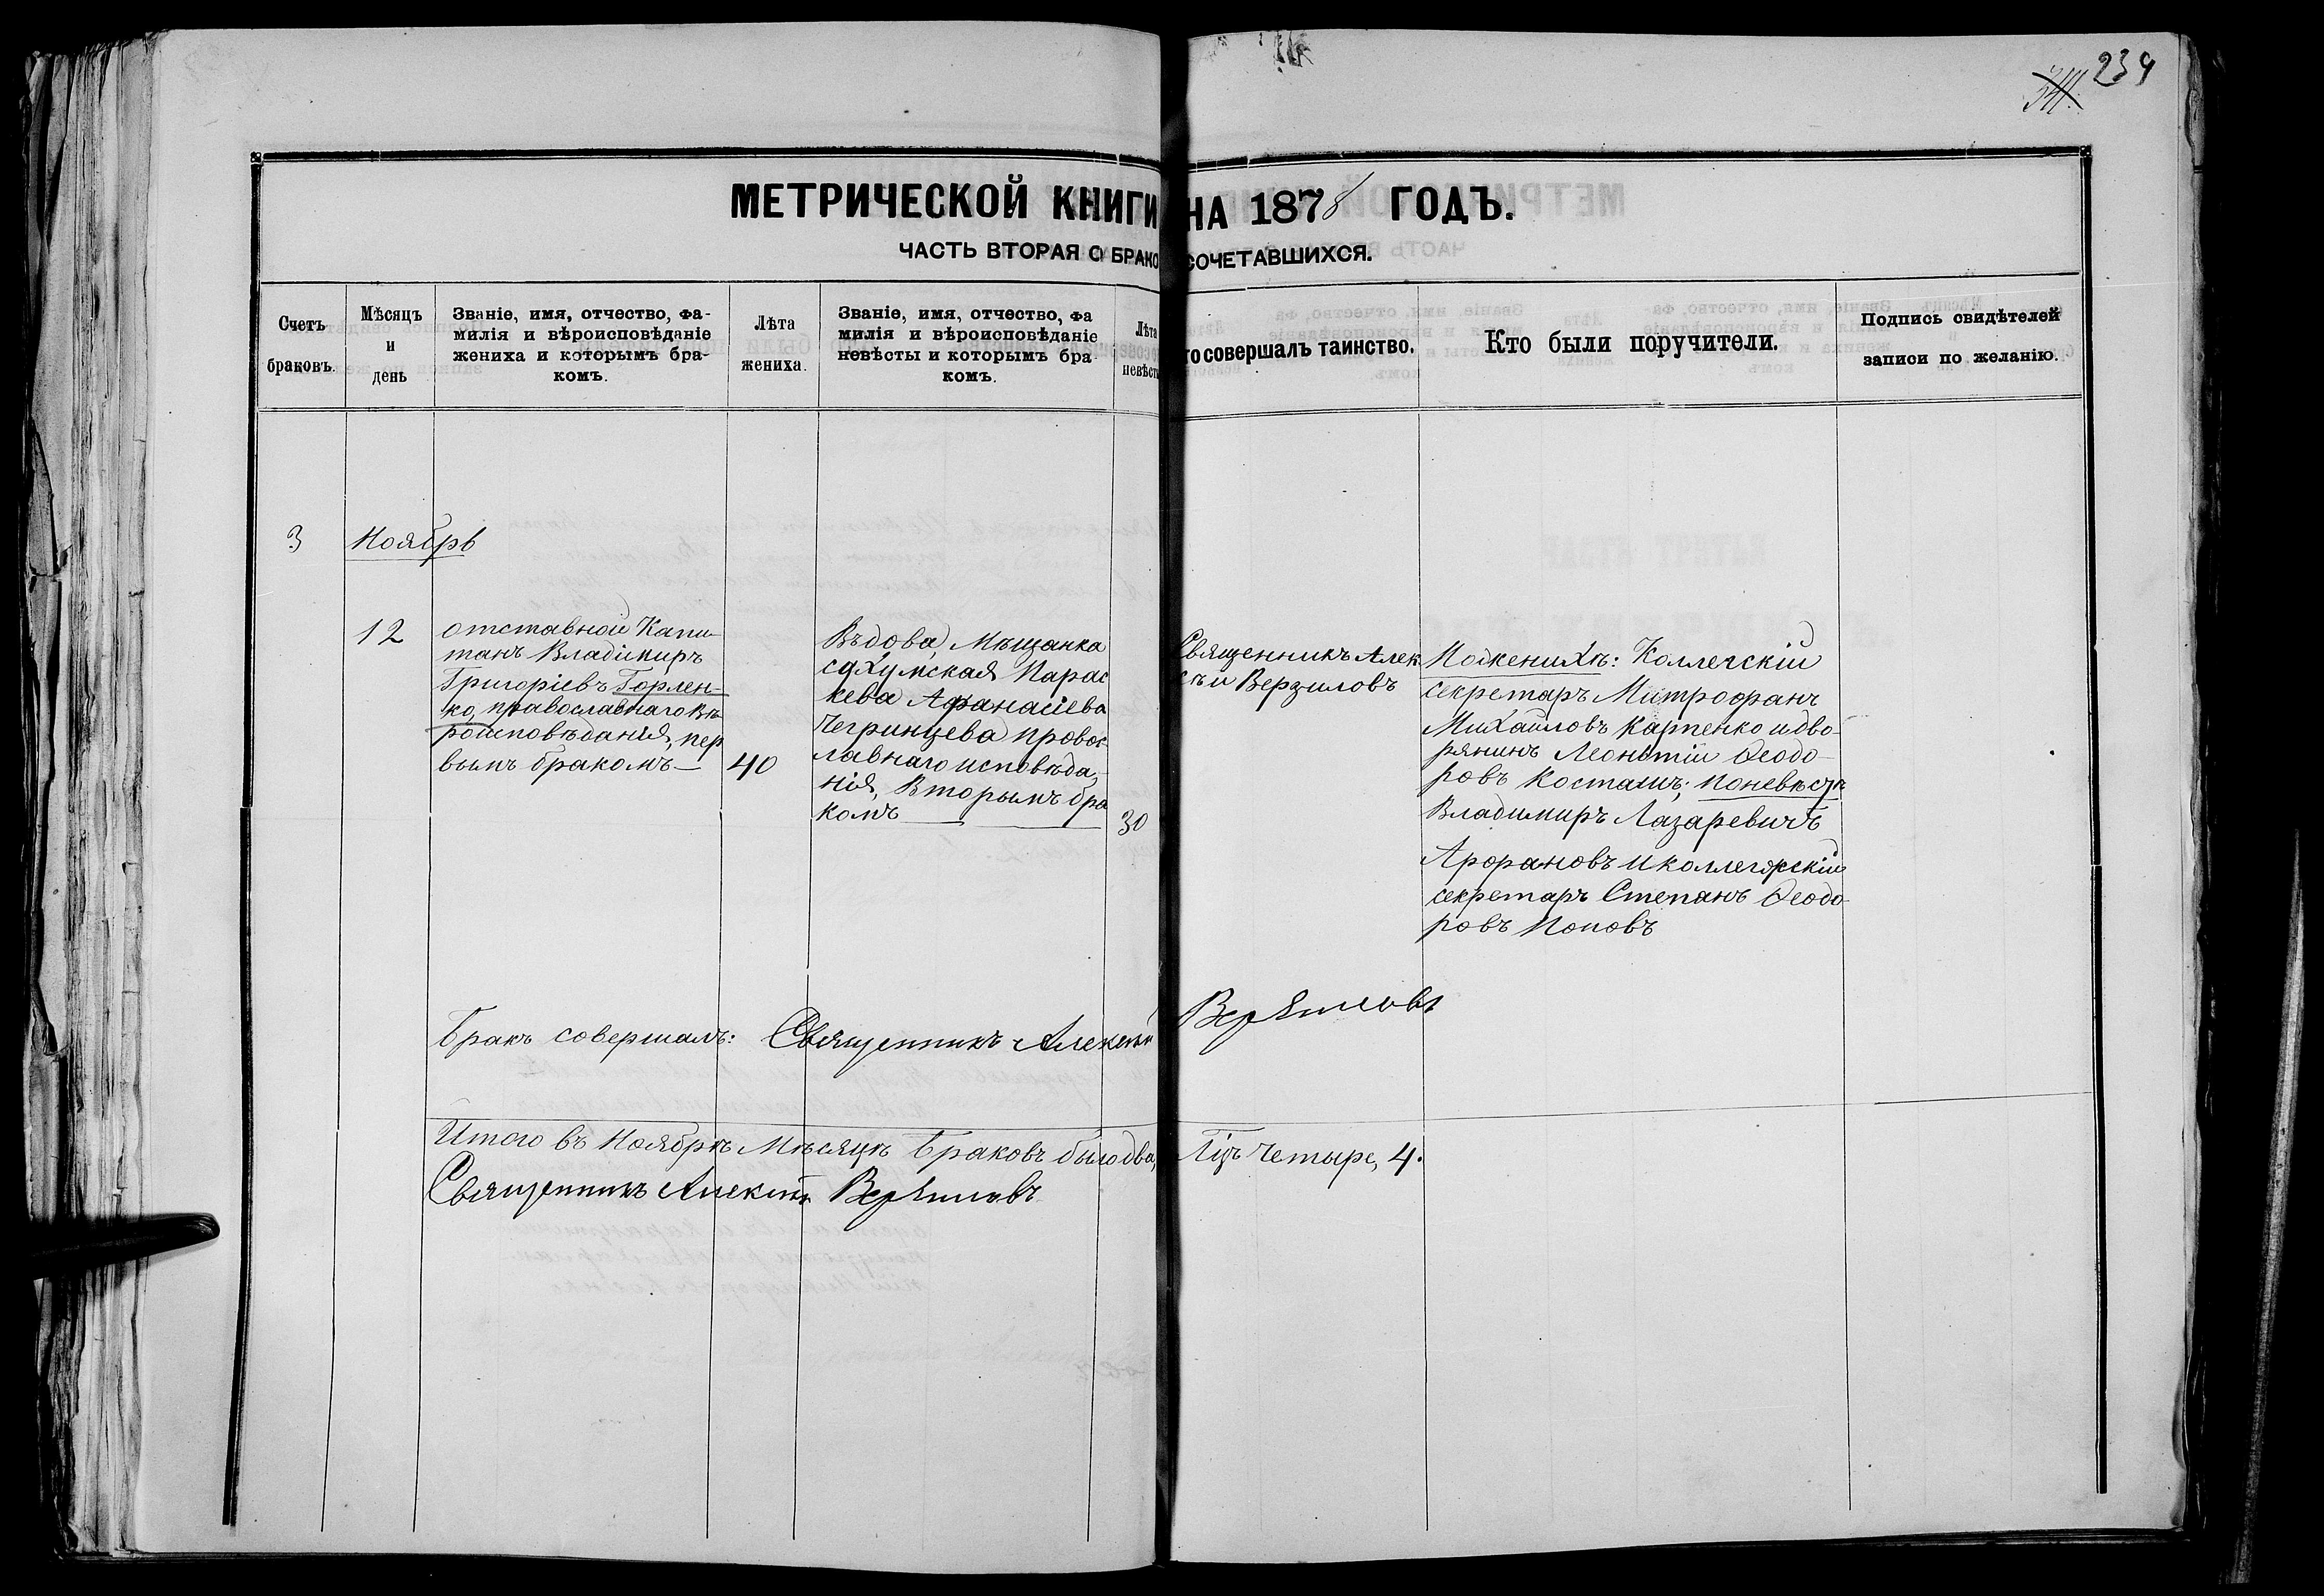 234
МЕТРИЧЕСКОЙ КНИГИ НА 1878 ГОДЪ.
ЧАСТЬ ВТОРАЯ О БРАКОСОЧЕТАВШИХСЯ.
Счетъ
браковъ.
Мѣсяцъ
и
день
Званіе, имя, отчество, фа-
милія и вѣроисповѣданіе
жениха и которымъ бра-
комъ.
Лѣта
жениха.
Званіе, имя, отчество, фа
милія и вѣроисповѣданіе
невѣсты и которымъ бра-
комъ.
Лѣта
невѣсты
то совершалъ таинство.
Кто были поручители.
Подпись свидѣтелей
записи по желанію.
3
Ноябрь
12
отставной Капи-
танъ Владіміръ
Григоріевъ Горлен-
ко, православнаго вѣ
роисповѣданія, пер
вымъ бракомъ —
40
Въдова, Мѣщанка
сухумская Парас
кева Афанасіева
Чегринцева провос
лавнаго исповѣда,
нія, Вторымъ бра
комъ
30
Священникъ Алек
сѣй Верзиловъ
По женихѣ: Коллегскій
секретаръ Митрофанъ
Михайловъ Карпенко и дво-
рянинъ Леонтій Ѳеодо-
ровъ Косташъ; по невѣстѣ
Владимиръ Лазаревичъ
Арфановъ и коллегскій
секретаръ Степанъ Ѳеодо-
ровъ Поповъ
Бракъ совершалъ: Священникъ Алексѣй Верзиловъ
Итого въ Ноябрѣ Мѣсяцѣ браковъ было два, Лицъ Четыре, 4.
Священникъ Алексѣй Верзиловъ